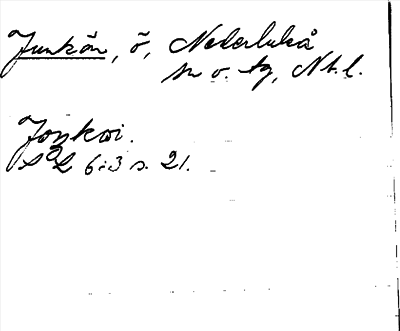 Junkön, ö, Nederluleå
sn o. tg, Nb. l.
Joŋkøi.
SOL 6:3 s. 21.